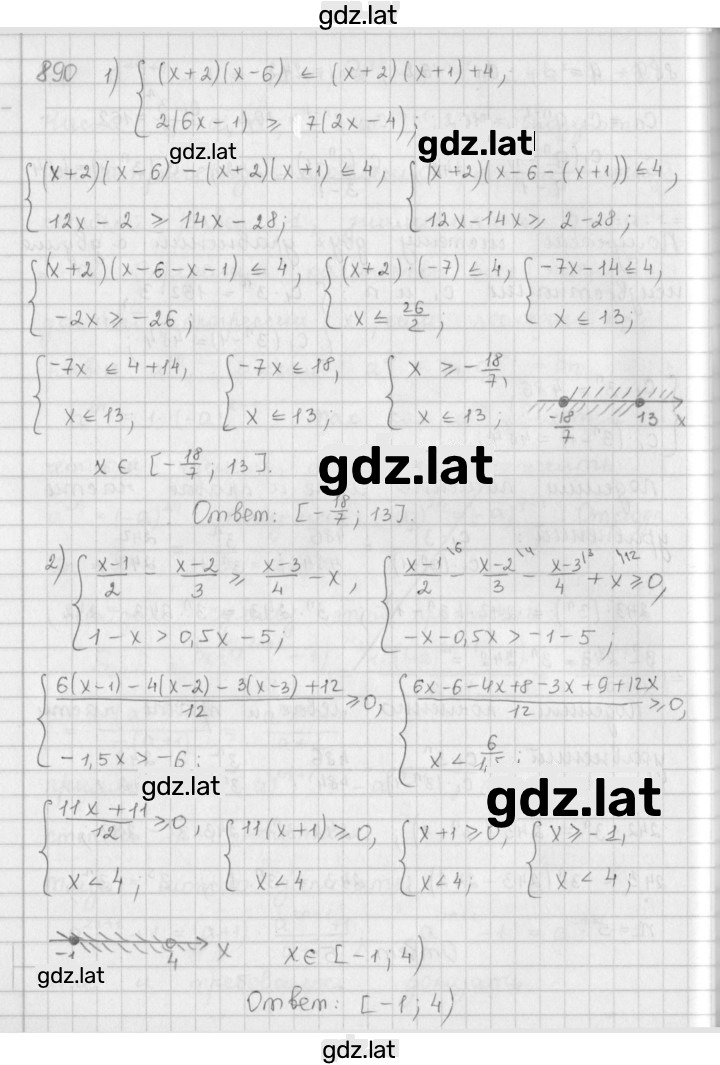 gdz.lat
890 1) { (x+2)(x-6) ≤ (x+2)(x+1)+4,
2(6x-1) ≥ 7(2x-4);
gdz.lat gdz.lat
{ (x+2)(x-6) - (x+2)(x+1) ≤ 4, { (x+2)(x-6-(x+1)) ≤ 4,
12x - 2 ≥ 14x - 28; 12x-14x ≥ 2-28;
{ (x+2)(x-6-x-1) ≤ 4, { (x+2)·(-7) ≤ 4, { -7x-14 ≤ 4,
-2x ≥ -26; x ≤ 26/2; x ≤ 13;
{ -7x ≤ 4+14, { -7x ≤ 18, { x ≥ -18/7,
x ≤ 13, x ≤ 13; x ≤ 13; -18/7 13 x
x ∈ [-18/7; 13]. gdz.lat
Ответ: [-18/7; 13].
2) { (x-1)/2 - (x-2)/3 ≥ (x-3)/4 - x, { (x-1)/2 \6 - (x-2)/3 \4 - (x-3)/4 \3 + x \12 ≥ 0,
1-x > 0,5x-5; -x-0,5x > -1-5;
{ (6(x-1)-4(x-2)-3(x-3)+12)/12 ≥ 0, { (6x-6-4x+8-3x+9+12x)/12 ≥ 0,
-1,5x > -6; x < 6/1,5;
gdz.lat gdz.lat
{ (11x+11)/12 ≥ 0, { 11(x+1) ≥ 0, { x+1 ≥ 0, { x ≥ -1,
x < 4; x < 4 x < 4; x < 4;
-1 4 x x ∈ [-1; 4)
gdz.lat
Ответ: [-1; 4)
gdz.lat